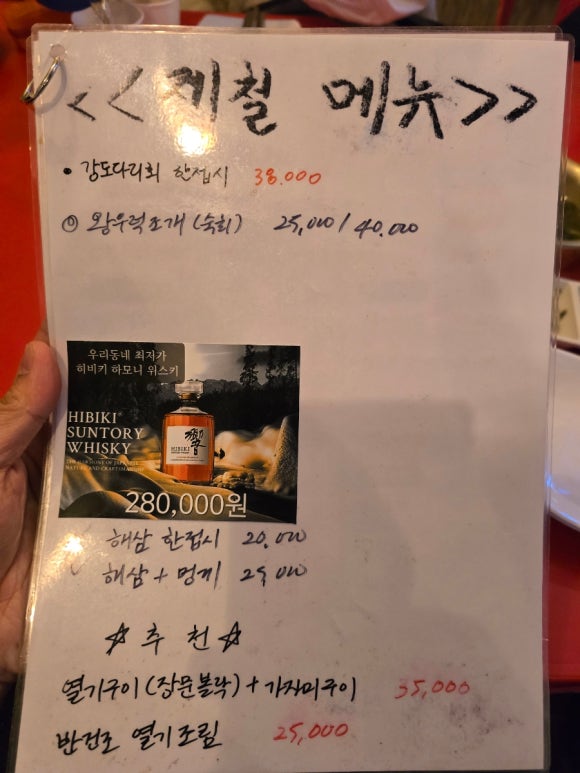 <<제철 메뉴>>
• 강도다리회 한접시 38.000
◎ 왕우럭조개 (숙회) 25,000 / 40.000
우리동네 최저가
히비키 하모니 위스키
HIBIKI
SUNTORY
WHISKY
THE HARMONY OF JAPANESE
NATURE AND CRAFTSMANSHIP
響
HIBIKI
280,000원
✓ 해삼 한접시 20.000
✓ 해삼 + 멍게 25,000
☆ 추천 ☆
열기구이 (장문볼락) + 가자미구이 35,000
반건조 열기조림 25,000